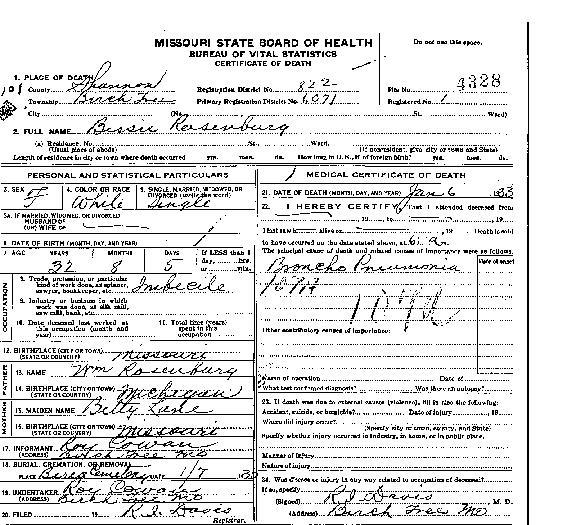 MISSOURI STATE BOARD OF HEALTH
BUREAU OF VITAL STATISTICS
CERTIFICATE OF DEATH
Do not use this space.
1. PLACE OF DEATH
County Shannon Registration District No. 822 File No. 4328
Township Birch Tree Primary Registration District No. 6071 Registered No. 1
City (No. St. Ward)
2. FULL NAME Bessie Rosenburg
(a) Residence. No. St. Ward.
(Usual place of abode) (If nonresident, give city or town and State)
Length of residence in city or town where death occurred yrs. mos. ds. How long in U.S., if of foreign birth? yrs. mos. ds.
PERSONAL AND STATISTICAL PARTICULARS
3. SEX F
4. COLOR OR RACE White
5. SINGLE, MARRIED, WIDOWED, OR DIVORCED (write the word) Single
5A. IF MARRIED, WIDOWED, OR DIVORCED
HUSBAND OF
(OR) WIFE OF
6. DATE OF BIRTH (MONTH, DAY, AND YEAR)
7. AGE YEARS MONTHS DAYS If LESS than 1
day, hrs.
or min.
32 8 5
OCCUPATION
8. Trade, profession, or particular
kind of work done, as spinner,
sawyer, bookkeeper, etc. Imbecile
9. Industry or business in which
work was done, as silk mill,
saw mill, bank, etc.
10. Date deceased last worked at
this occupation (month and
year)
11. Total time (years)
spent in this
occupation
12. BIRTHPLACE (CITY OR TOWN) Missouri
(STATE OR COUNTRY)
FATHER
13. NAME Wm Rosenburg
14. BIRTHPLACE (CITY OR TOWN) Michigan
(STATE OR COUNTRY)
MOTHER
15. MAIDEN NAME Betty
16. BIRTHPLACE (CITY OR TOWN) Missouri
(STATE OR COUNTRY)
17. INFORMANT Roy Cowan
(ADDRESS) Birch Tree Mo
18. BURIAL, CREMATION, OR REMOVAL
PLACE Cemetery 1/7 33
19. UNDERTAKER Roy Cowan
(ADDRESS) Birch Tree Mo
20. FILED 19 R.I. Davis
Registrar.
MEDICAL CERTIFICATE OF DEATH
21. DATE OF DEATH (MONTH, DAY, AND YEAR) Jan 6 33
22. I HEREBY CERTIFY, That I attended deceased from
, 19 , to , 19
I last saw h alive on , 19 Death is said
to have occurred on the date stated above, at 6 a.
The principal cause of death and related causes of importance were as follows:
Date of onset
Broncho Pneumonia
107A
Other contributory causes of importance:
Name of operation Date of
What test confirmed diagnosis? Was there an autopsy?
23. If death was due to external causes (violence), fill in also the following:
Accident, suicide, or homicide? Date of injury , 19
Where did injury occur?
(Specify city or town, county, and State)
Specify whether injury occurred in industry, in home, or in public place.
Manner of injury
Nature of injury
24. Was disease or injury in any way related to occupation of deceased?
If so, specify
(Signed) R.I. Davis M. D.
(Address) Birch Tree Mo